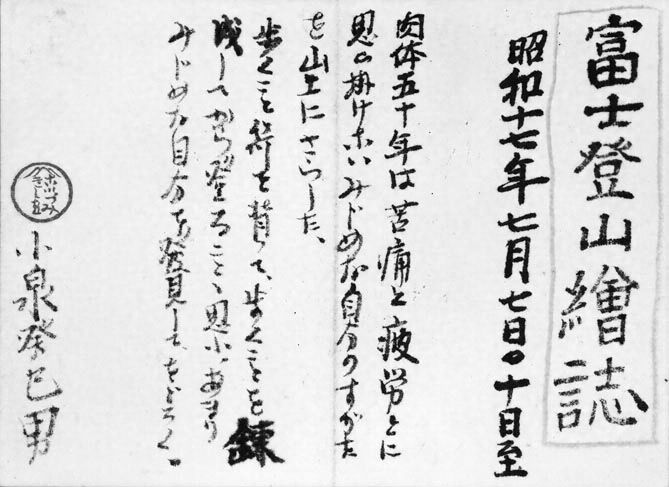 富士登山繪誌
昭和十七年七月七日〇十日至
肉体五十年は苦痛と疲労とに
思ひ掛けないみじめな自分のすがた
を山上にさらした、
歩くこと
成してから登ること、思ふあまり
みじめな自分を発見してをどろく
小泉癸巳男